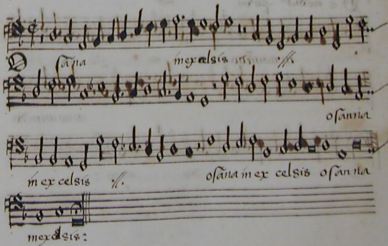 sana in excelsis .//.
osanna
in ex celsis .//. osana in ex celsis osanna
in excelsis: